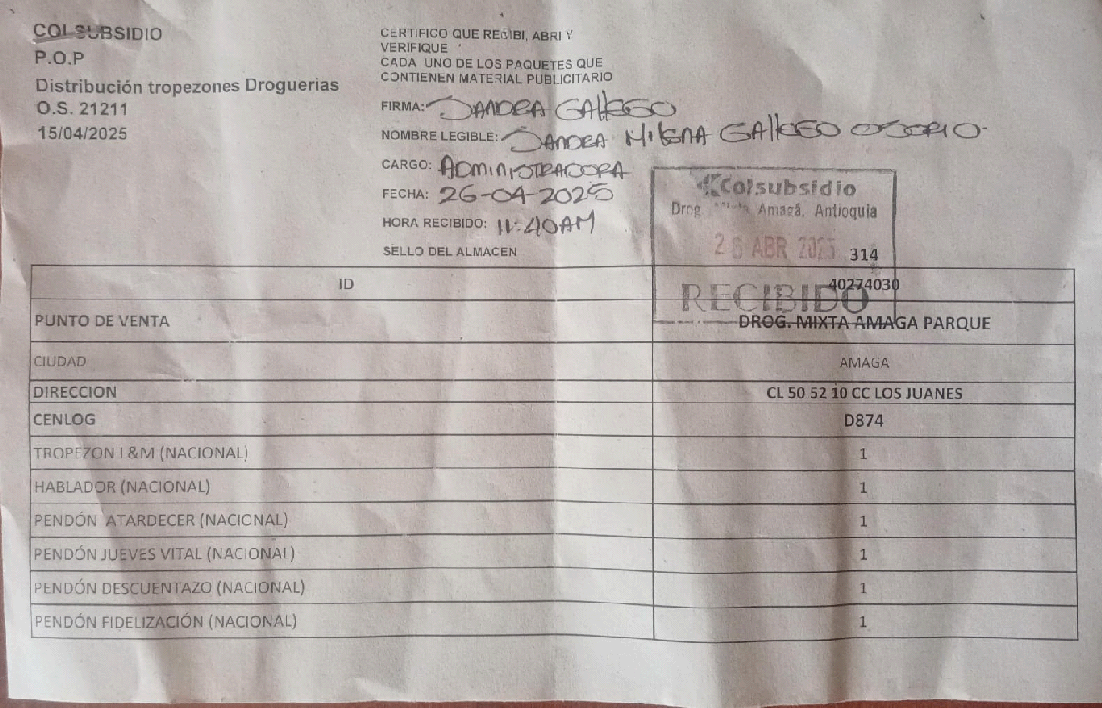 COLSUBSIDIO
P.O.P
Distribución tropezones Droguerias
O.S. 21211
15/04/2025
CERTIFICO QUE RECIBI, ABRI Y
VERIFIQUE
CADA UNO DE LOS PAQUETES QUE
CONTIENEN MATERIAL PUBLICITARIO
FIRMA: SANDRA GALLEGO
NOMBRE LEGIBLE: SANDRA MILENA GALLEGO OSORIO
CARGO: ADMINISTRADORA
FECHA: 26-04-2025
HORA RECIBIDO: 11:40AM
SELLO DEL ALMACEN
Colsubsidio
Drog. Mixta Amagá, Antioquia
26 ABR 2025
RECIBIDO
314
ID 40274030
PUNTO DE VENTA DROG. MIXTA AMAGA PARQUE
CIUDAD AMAGA
DIRECCION CL 50 52 10 CC LOS JUANES
CENLOG D874
TROPEZON I &M (NACIONAL) 1
HABLADOR (NACIONAL) 1
PENDÓN ATARDECER (NACIONAL) 1
PENDÓN JUEVES VITAL (NACIONAL) 1
PENDÓN DESCUENTAZO (NACIONAL) 1
PENDÓN FIDELIZACIÓN (NACIONAL) 1